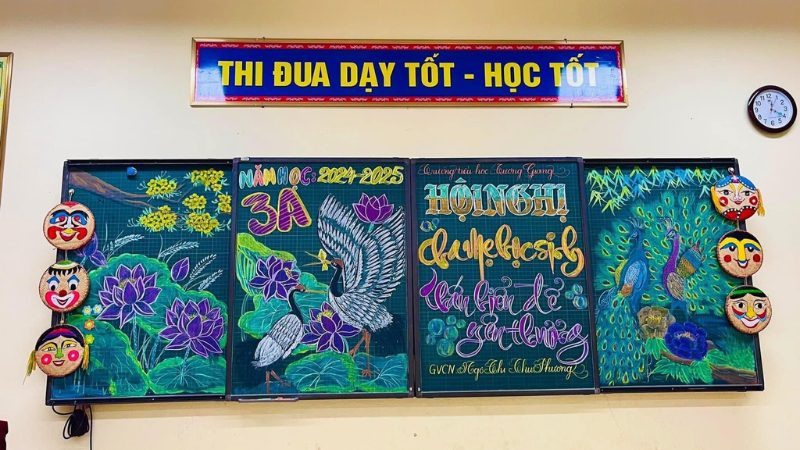 THI ĐUA DẠY TỐT - HỌC TỐT
NĂM HỌC: 2024-2025
3A
Trường tiểu học Tương Giang
HỘI NGHỊ
cha mẹ học sinh
thân yêu
GVCN Ngô Thị Thu Hương